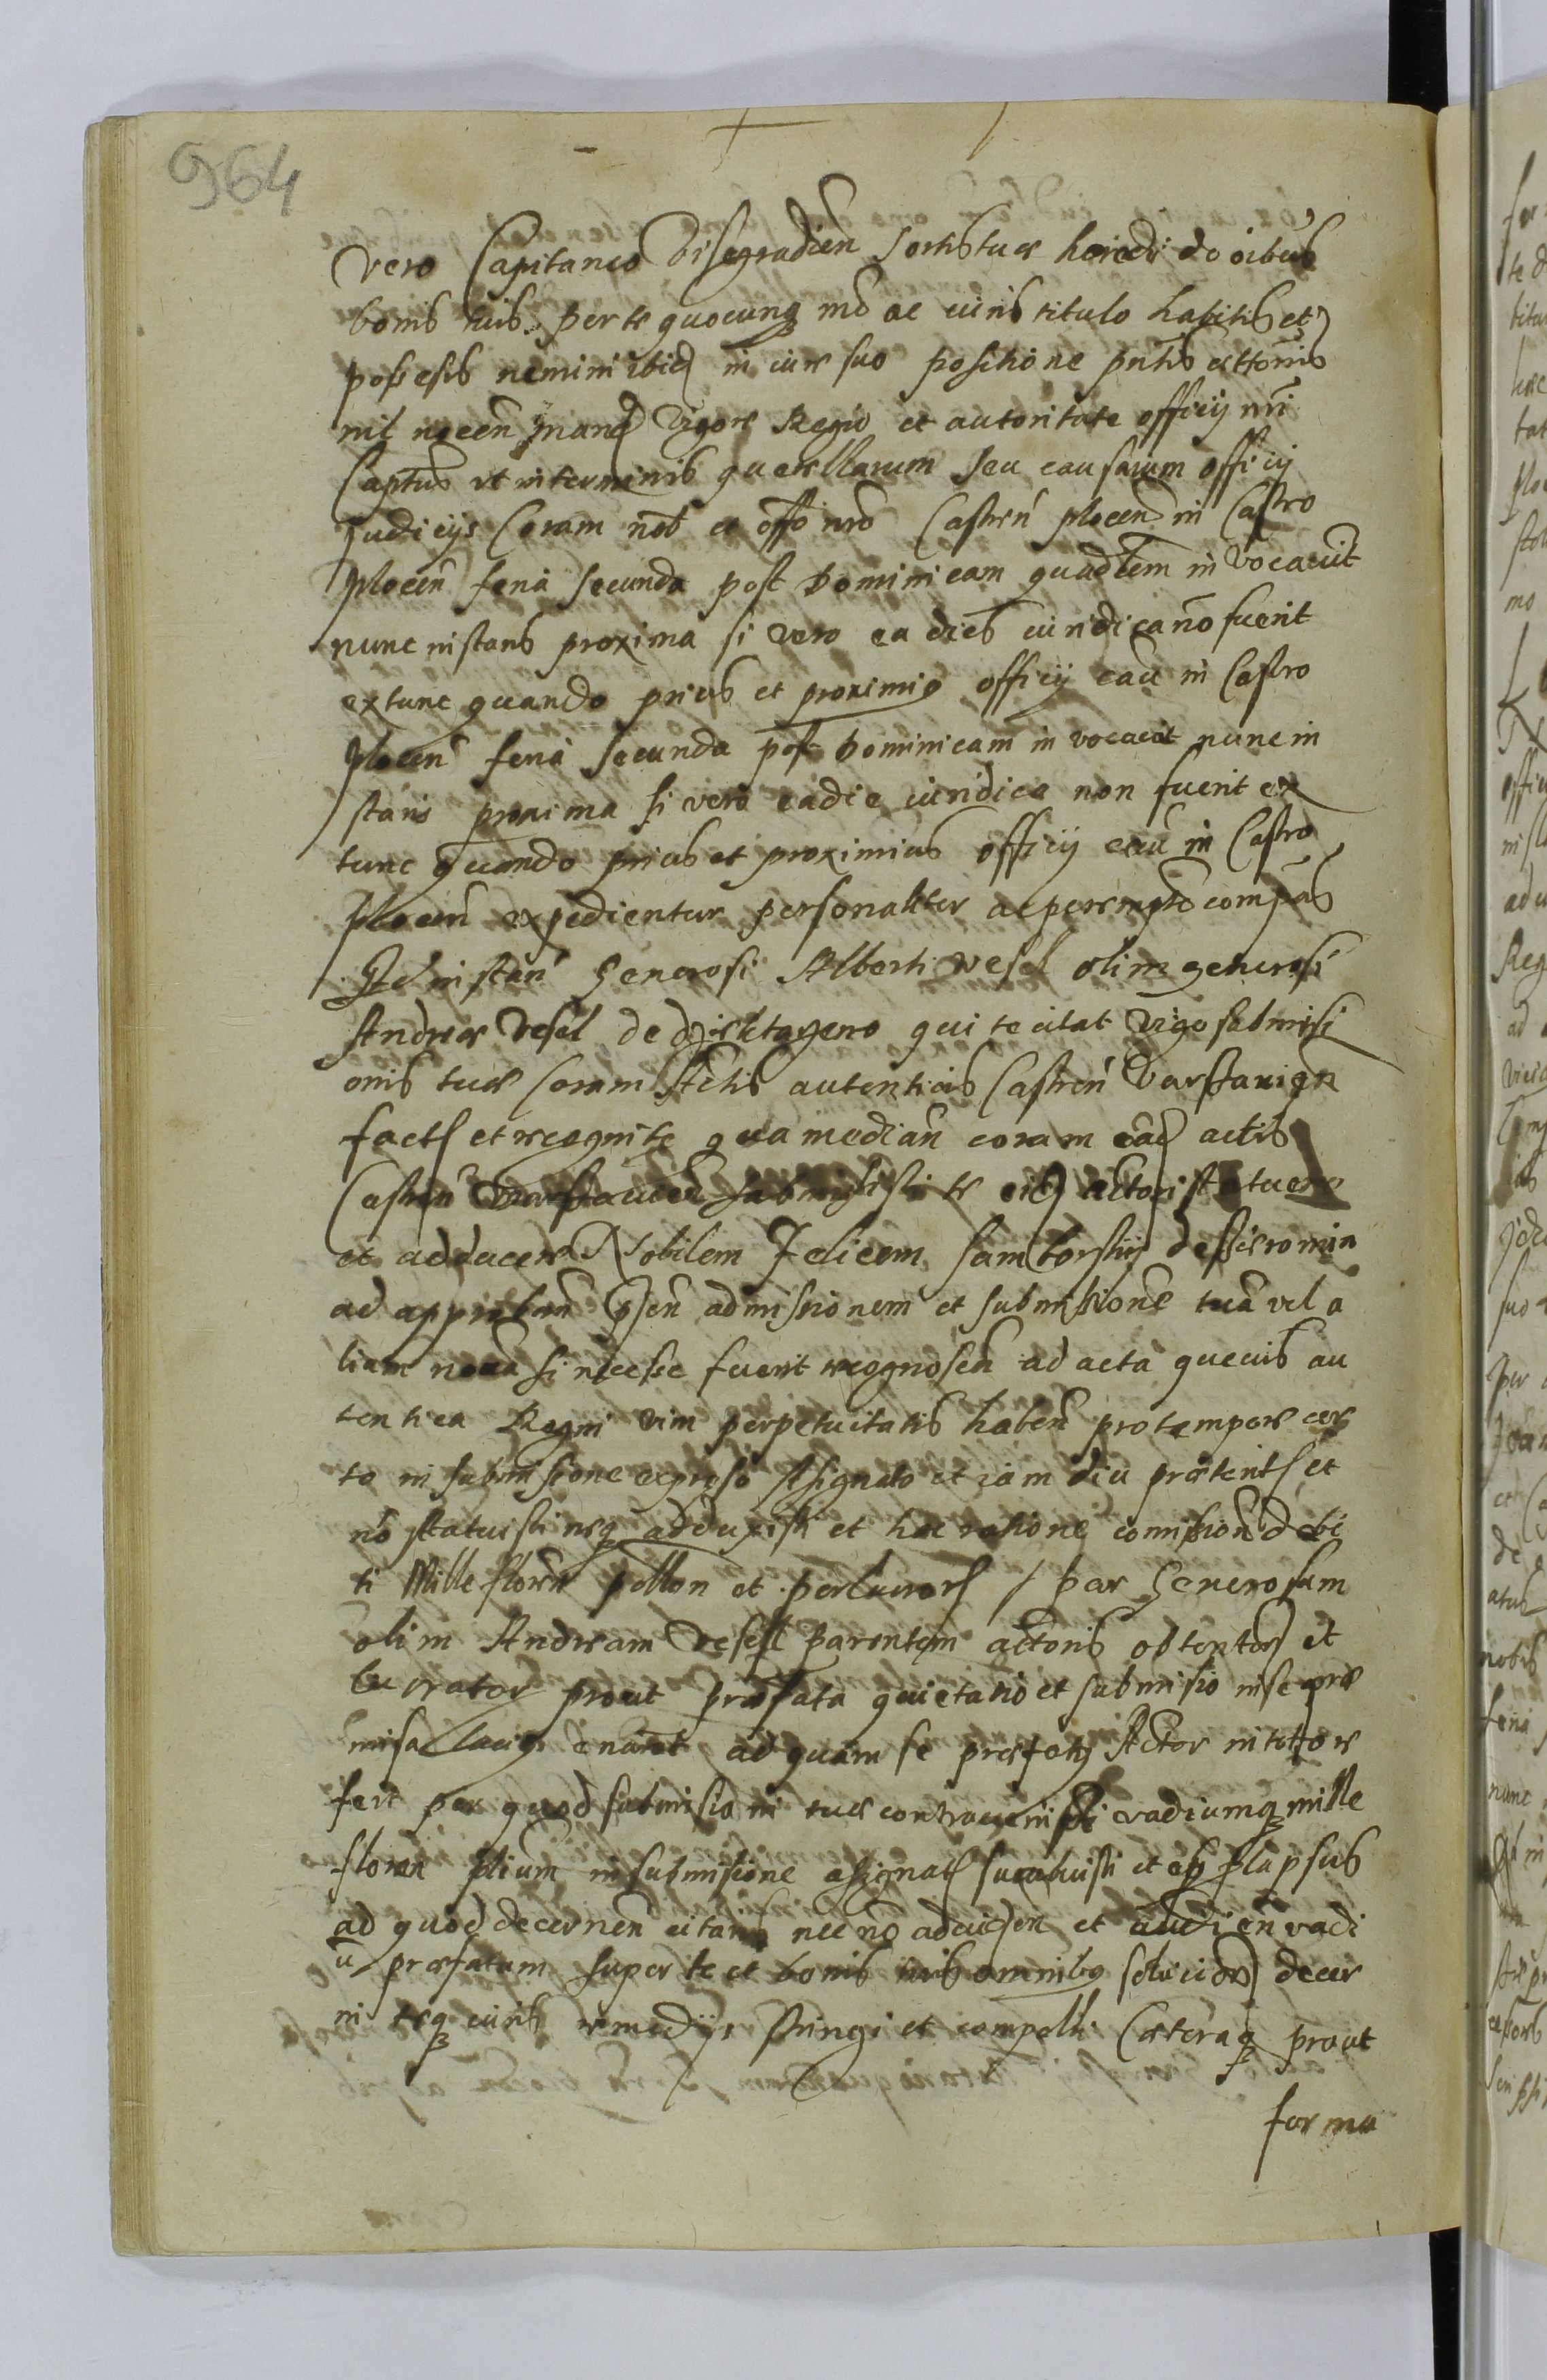 964
vero Capitaneo Visegradien̄ sortis tuæ heredi de oibus
bonis tuis per te quocunq mō ac iuris titulo habitis et
possesis nemini ibid in iure suo positione pn̄tis cittonis
nil nocen̄ mand Vigore Regio et autoritate officij nr̄i
Captus vt in terminis querellarum seu causarum officij
Judicijs Coram nob et offo nrō Castren̄ plocen̄ in Castro
plocen̄ feria secunda post Dominicam quadtem in vocavit
nunc instans proxima si vero ea dies iuridica nō fuerit
extunc quando prius et proximig officij cau in Castro
plocen̄ feria secunda post Dominicam in vocavit nunc in
stans proxima si vero eadie iuridica non fuerit ex
tunc quando prius et proximius officij cau in Castro
plocen̄ expedientur personaliter ac peremptō compās
Ad instan̄ Generosi Alberti Vesel olim generosi
Andreæ Vesel de qui te citat Vigo submisi
onis tuæ Coram Actis autenticis Castren̄ Varssavien
facts et recognite qua median̄ coram eisd actis
Castren̄ Varssavien submisisti te eid actori statuere
et adducere Nobilem Felicem Samborskij de
ad approban̄ admissionem et submissione tuā vel a
liam novā si necesse fuerit recognosen̄ ad acta quevis au
tentica Regni vim perpetuitatis haben̄ pro tempore cer
to in submissione expreso Asignato et iam diu præterits et
nō statuisti neq adduxisti et hac ratione comissionē debi
ti Mille floren̄ pollon et perlucrors per Generosum
olim Andream Vesell parentem actoris obtentor et
lucrator prout præfata quietatio et submisio in se præ
misa latig enarat ad quam se præfatg Actor in totto re
fert per quod submisioni tuæ contravenisti vadiumq mille
floren plium in submisione asignats sucubuisti et
ad quod decernen citaris nec nō adeiden et audien vadi
ū præfatum super te et bonis tuis omnibg decer
ni teq iuris remedijs stringi et compelli Cæteraq prout
forma